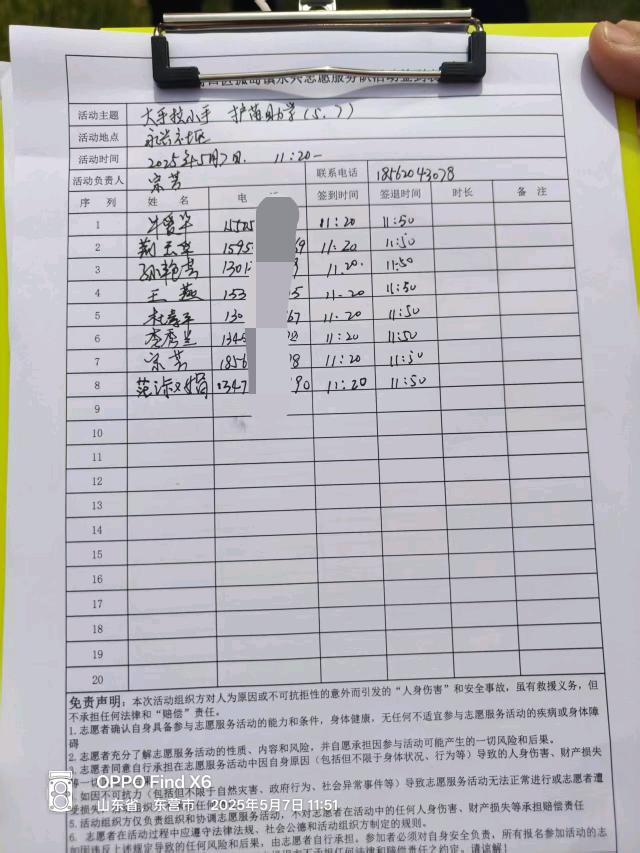 活动主题 大手拉小手 护苗助学(5.7)
活动地点 永兴社区
活动时间 2025年5月7日. 11:20-
活动负责人 宗芳 联系电话 18562043078
序 列 姓 名 电 签到时间 签退时间 时长 备 注
1 11:20 11:50
2 1595 69 11.20 11:50
3 1301 11.20. 11:50
4 王燕 153 5 11.20 11:50
5 130 67 11.20 11:50
6 李秀兰 134 11:20 11:50
7 宗芳 1856 8 11:20 11:50
8 范淑娟 1347 90 11:20 11:50
9
10
11
12
13
14
15
16
17
18
19
20
免责声明:本次活动组织方对人为原因或不可抗拒性的意外而引发的“人身伤害”和安全事故,虽有救援义务,但
不承担任何法律和“赔偿”责任。
1. 志愿者确认自身具备参与志愿服务活动的能力和条件,身体健康,无任何不适宜参与志愿服务活动的疾病或身体障
碍
2. 志愿者充分了解志愿服务活动的性质、内容和风险,并自愿承担因参与活动可能产生的一切风险和后果。
3. 志愿者同意自行承担在志愿服务活动中因自身原因(包括但不限于身体状况、行为等)导致的人身伤害、财产损失
等一切
如因不可抗力(包括但不限于自然灾害、政府行为、社会异常事件等)导致志愿服务活动无法正常进行或志愿者遭
受损失
OPPO Find X6
山东省·东营市 2025年5月7日 11:51
5. 活动组织方仅负责组织和协调志愿服务活动,不对志愿者在活动中的任何人身伤害、财产损失等承担赔偿责任
6. 志愿者在活动过程中应遵守法律法规、社会公德和活动组织方制定的规则。
如因违反上述规定导致的任何风险和后果,由志愿者自行承担。参加者必须对自身安全负责,所有报名参加活动的志